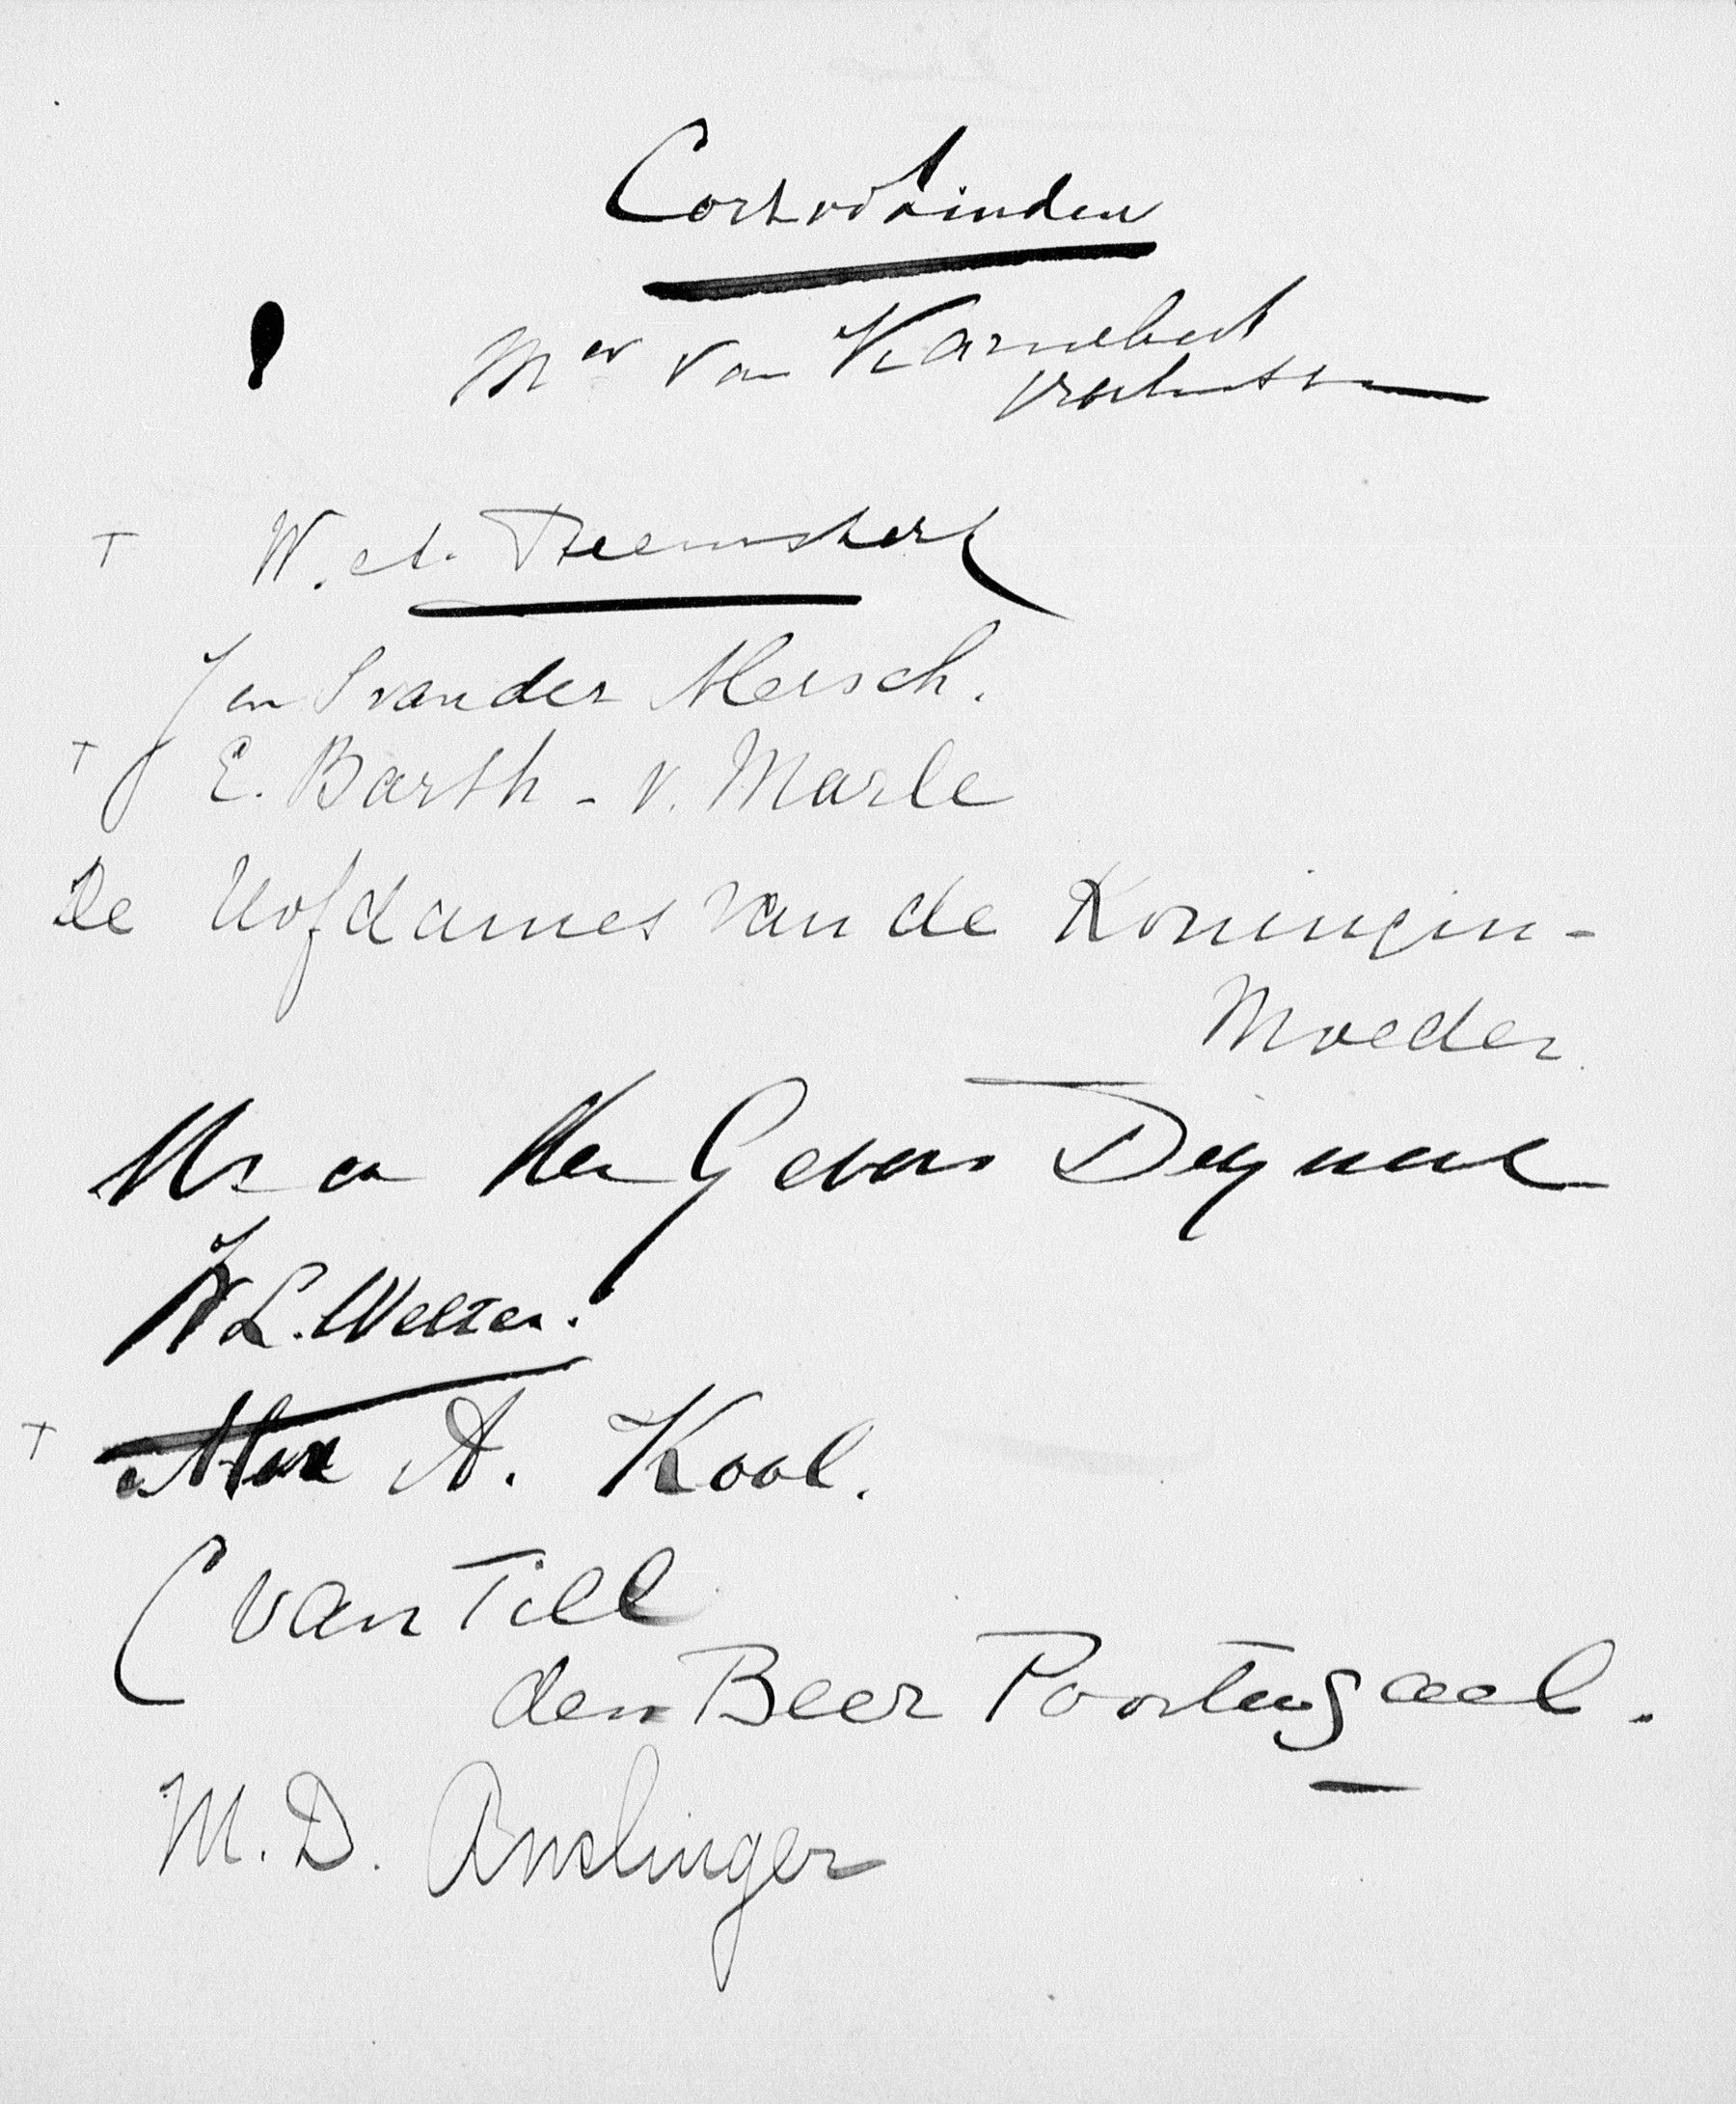 Cort vd Linden
Mev van Karnebeek
W. A. Beemskerk
J en S van der Mersch.
E. Barth - v. Marle
De Hofdames van de Koningin-
Moeder
Mr en Mev Gevers Deynoot
L. Welter.
A. Kool.
C van Till
den Beer Poortugael.
M. D. Amslinger